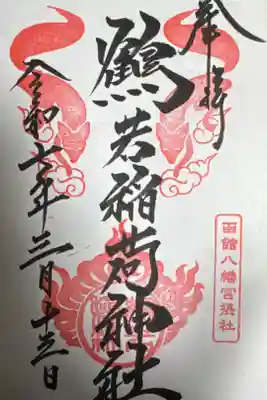 奉拝
函館八幡宮摂社
鶴若稲荷神社
令和七年三月十三日